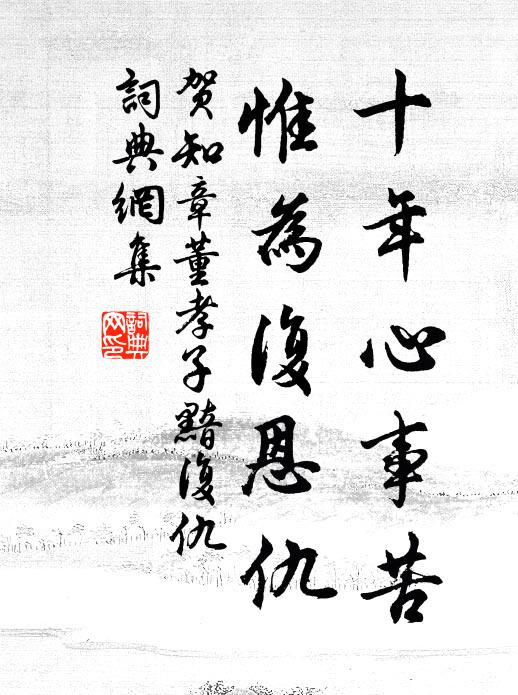 十年心事苦
惟為復恩仇
贺知章董孝子黯復仇
詞典網集
詞典网印